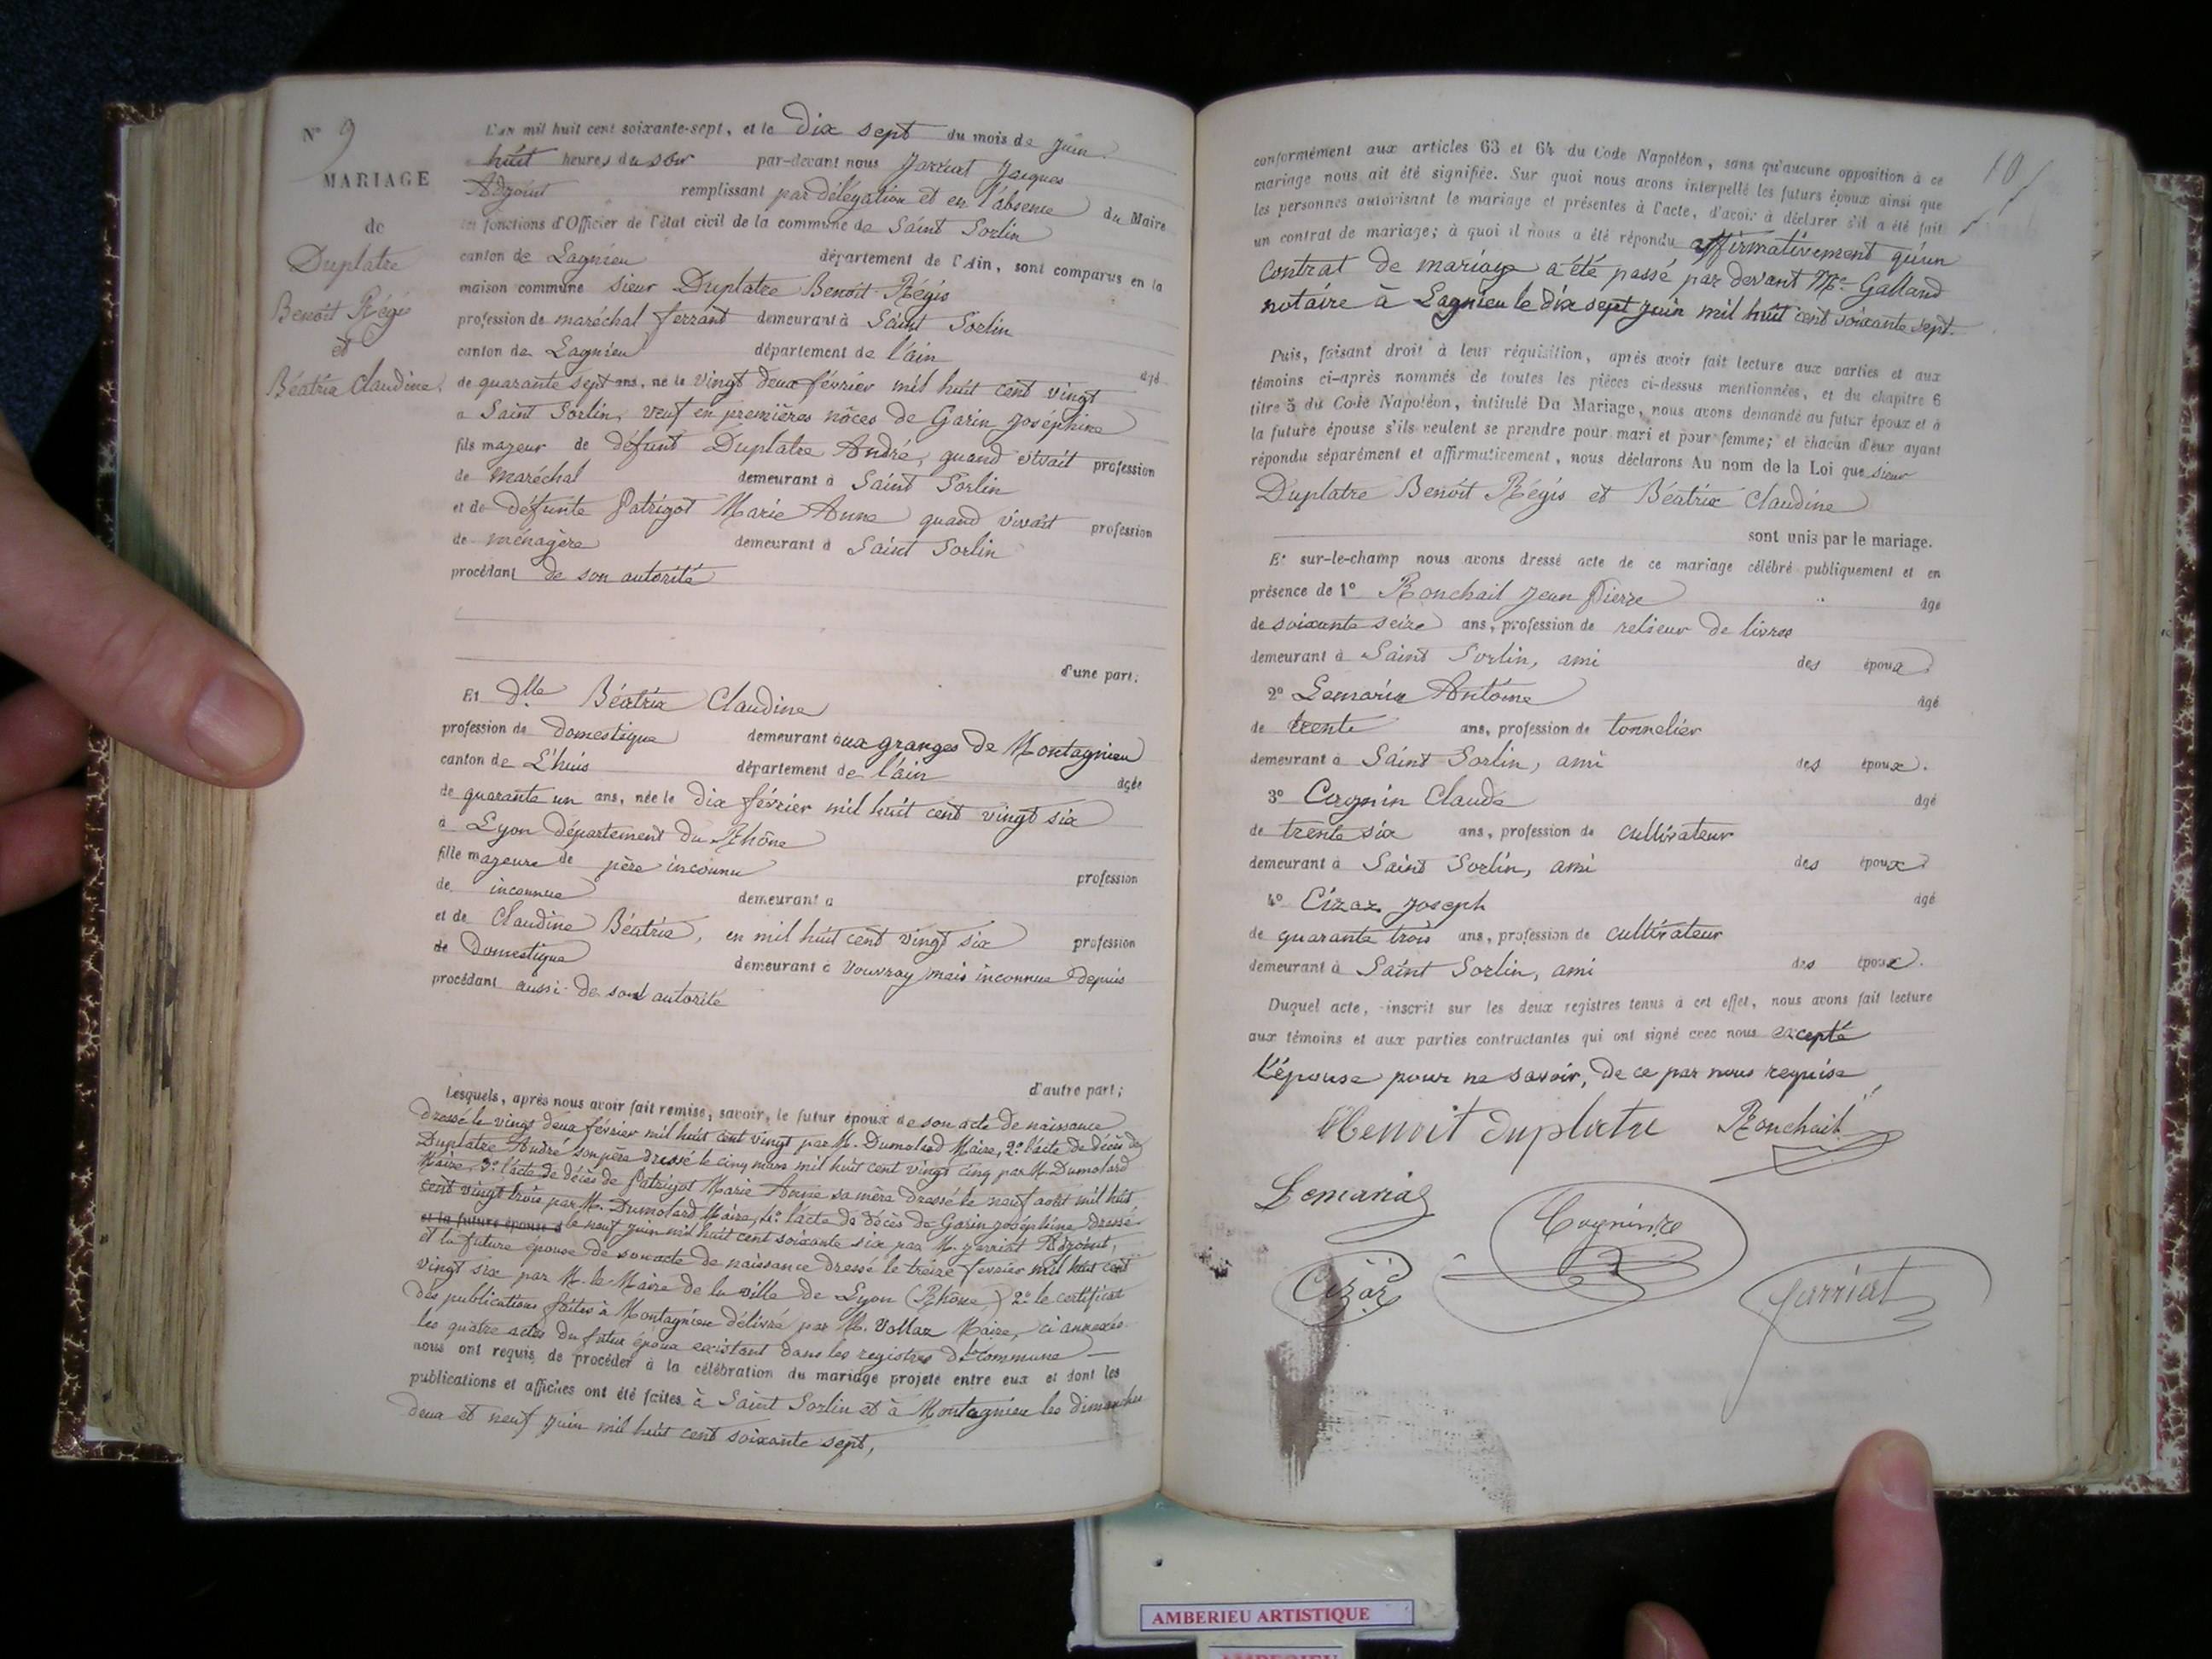 N° 9
MARIAGE
de
Duplatre
Benoit Régis
et
Béatrix Claudine.
L'an mil huit cent soixante-sept, et le dix sept du mois de juin
huit heures du soir par-devant nous Jarriat Jacques
Adjoint remplissant par délégation et en l'absence du Maire
les fonctions d'Officier de l'état civil de la commune de Saint Sorlin
canton de Lagnieu département de l'Ain, sont comparus en la
maison commune sieur Duplatre Benoit Régis
profession de maréchal ferrant demeurant à Saint Sorlin
canton de Lagnieu département de l'ain âgé
de quarante sept ans, né le vingt deux février mil huit cent vingt
a Saint Sorlin, veuf en premières nôces de Garin Joséphine
fils majeur de défunt Duplatre André, quand vivait profession
de maréchal demeurant à Saint Sorlin
et de défunte Patrigot Marie Anne quand vivait profession
de ménagère demeurant à Saint Sorlin
procédant de son autorité
d'une part;
Et dlle Béatrix Claudine
profession de domestique demeurant aux granges de Montagnieu
canton de L'huis département de l'ain âgée
de quarante un ans, née le dix février mil huit cent vingt six
à Lyon département du Rhône
fille majeure de père inconnu profession
de inconnue demeurant a
et de Claudine Béatrix, en mil huit cent vingt six profession
de domestique demeurant à Vouvray mais inconnue depuis
procédant aussi de son autorité
d'autre part;
Lesquels, après nous avoir fait remise, savoir, le futur époux de son acte de naissance
dressé le vingt deux février mil huit cent vingt par M. Dumolard Maire, 2° l'acte de décès de
Duplatre André son père dressé le cinq mars mil huit cent vingt cinq par M. Dumolard
Maire, 3° l'acte de décès de Patrigot Marie Anne sa mère dressé le neuf août mil huit
cent vingt trois par M. Dumolard Maire, 4° l'acte de décès de Garin Joséphine dressé
et la future épouse le neuf juin mil huit cent soixante six par M. Jarriat Adjoint,
et la future épouse de son acte de naissance dressé le treize fevrier mil huit cent
vingt six par M. le Maire de la ville de Lyon (Rhône) 2° le certificat
des publications faites à Montagnieu délivré par M. Vollaz Maire, ci annexés
les quatre actes du futur époux existant dans les registres de la commune
nous ont requis de procéder à la célébration du mariage projeté entre eux et dont les
publications et affiches ont été faites à Saint Sorlin et à Montagnieu les dimanches
deux et neuf juin mil huit cent soixante sept,
10
conformément aux articles 63 et 64 du Code Napoléon, sans qu'aucune opposition à ce
mariage nous ait été signifiée. Sur quoi nous avons interpellé les futurs époux ainsi que
les personnes autorisant le mariage et présentes à l'acte, d'avoir à déclarer s'il a été fait
un contrat de mariage; à quoi il nous a été répondu affirmativement qu'un
contrat de mariage a été passé par devant Me Galland
notaire à Lagnieu le dix sept juin mil huit cent soixante sept.
Puis, faisant droit à leur réquisition, après avoir fait lecture aux parties et aux
témoins ci-après nommés de toutes les pièces ci-dessus mentionnées, et du chapitre 6
titre 5 du Code Napoléon, intitulé Du Mariage, nous avons demandé au futur époux et à
la future épouse s'ils veulent se prendre pour mari et pour femme; et chacun d'eux ayant
répondu séparément et affirmativement, nous déclarons Au nom de la Loi que sieur
Duplatre Benoit Régis et Béatrix Claudine
sont unis par le mariage.
Et sur-le-champ nous avons dressé acte de ce mariage célébré publiquement et en
présence de 1° Ronchail Jean Pierre âgé
de soixante seize ans, profession de relieur de livres
demeurant à Saint Sorlin, ami des époux.
2° Lemaria Antoine âgé
de trente ans, profession de tonnelier
demeurant à Saint Sorlin, ami des époux.
3° Cognin Claude âgé
de trente six ans, profession de cultivateur
demeurant à Saint Sorlin, ami des époux
4° Cizaz Joseph âgé
de quarante trois ans, profession de cultivateur
demeurant à Saint Sorlin, ami des époux.
Duquel acte, inscrit sur les deux registres tenus à cet effet, nous avons fait lecture
aux témoins et aux parties contractantes qui ont signé avec nous excepté
l'épouse pour ne savoir, de ce par nous requise
Benoit duplatre Ronchail
Lemaria
Cognin
Cizaz
Jarriat
AMBERIEU ARTISTIQUE